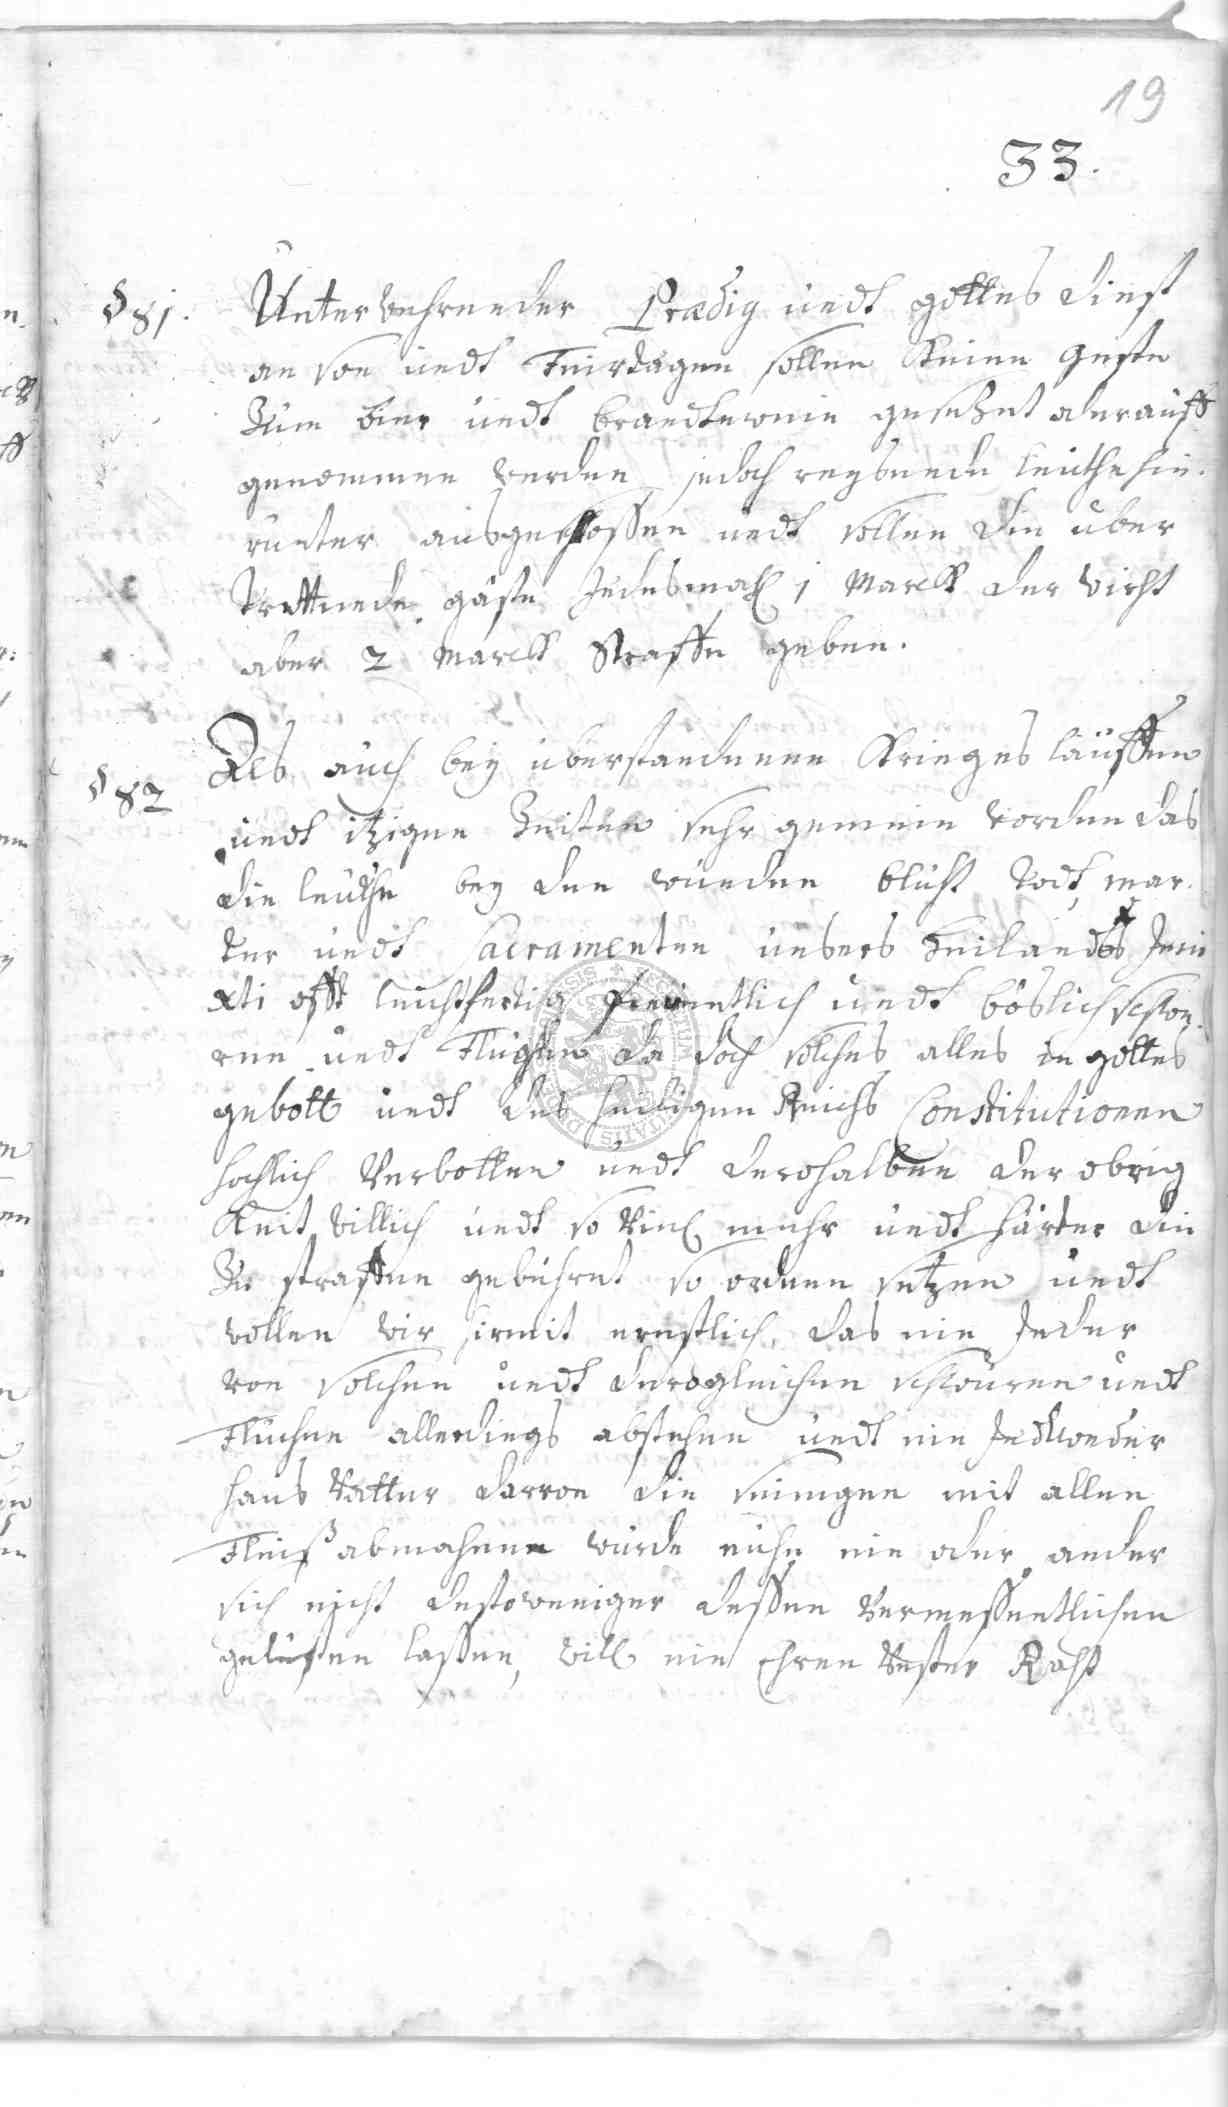 19
33.
§ 81. Unter wehrender Predig undt gottes dinst
an son undt Feirdagen sollen Keine geste
Zum bier undt brandtewein gesetzet oder auff
genommen werden, jedoch reysende leuthe hie.
runter ausgeschossen undt sollen die uber
Trettende gäste Jedesmahl 1 Marck der Wirht
aber 2 Marck Straffe geben.
§ 82 Als auch bey uberstandenen Krieges läufften
undt itzigen Zeiten sehr gemein worden das
die leuthe bey den wunden bluht todt, mar.
ter undt Sacramenten unsers Heilandes Jesu
Xti offt leichtfertig freventlich undt böslich schwe.
ren undt Fluchen da doch solches alles in gottes
gebott undt des heiligen Reichs Constitutionen
hochlich Verbotten undt derohalben der obrig
Keit billich undt so Viel mehr undt härter die
Zu straffen gebühret so ordnen setzen undt
wollen wir hirmit ernstlich, das ein Jeder
von solchen undt derogleichen schwüren undt
Fluchen allerdings abstehen undt ein Jedtweder
haus Vatter darvon die seinigen mit allen
Fleiß abmahnen würde aber ein oder ander
sich nicht destoweniger dessen Vermessentlichen
gelüsten lassen, will ein Ehren Vester Raht